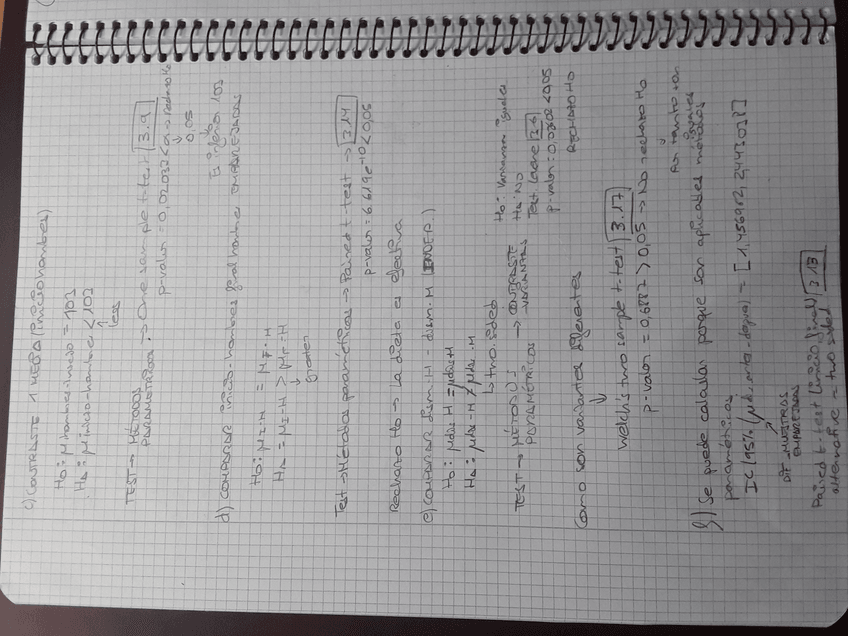 c) CONTRASTE 1 MEDIA (inicio hombres)
H0: μ hombres-inicio = 103
Ha: μ inicio-hombre < 103
less
TEST → MÉTODOS PARAMÉTRICOS → One sample t-test 3.9
p-valor = 0,02037 < α → rechazo H0
0,05
Es inferior 103
d) COMPARAR inicio-hombres final hombres EMPAREJADAS
H0: μI-H = μF-H
Ha = μI-H > μF-H
greater
Test → Métodos paramétricos → Paired t-test → 3.14
p-valor = 6.619e-10 < 0,05
Rechazo H0 → la dieta es efectiva
e) COMPARAR dism. H - dism. M (INDEP.)
H0: μdis H = μdis M
Ha: μdis-H ≠ μdis-M
two.sided
TEST → MÉTODOS PARAMÉTRICOS → CONTRASTE VARIANZAS
H0: Varianzas iguales
Ha: NO
Test Levene 3.6
p-valor = 0,03602 < 0,05
RECHAZO H0
Como son varianzas diferentes
Welch's two sample t-test 3.17
p-valor = 0,6882 > 0,05 → No rechazo H0
Por tanto son iguales
f) Se puede calcular porque son aplicables métodos
paramétricos
DIF MUESTRAS EMPAREJADAS
Paired t-test (inicio final) 3.13
alternative = two sided